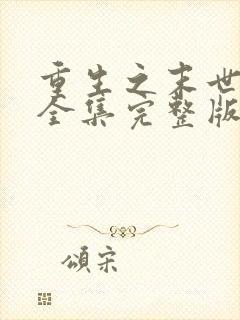 重生之末世
全集完整版
颂宋